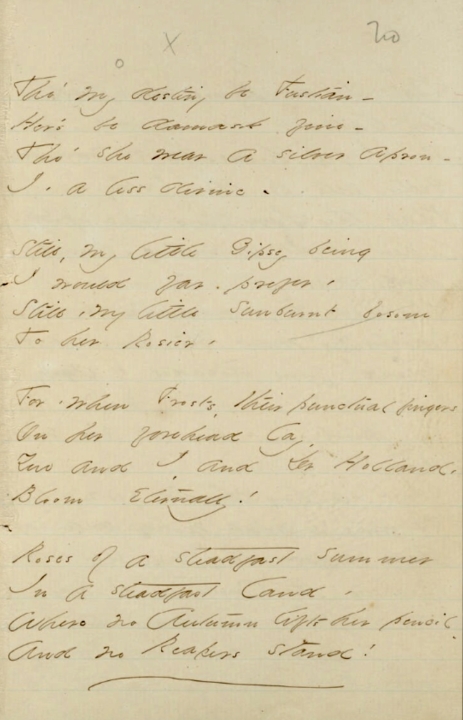 20
x
o
Tho' my destiny be Fustian –
Hers be damask fine –
Tho' she wear a silver apron –
I, a less divine –
Still, my little Gipsey being
I would far prefer,
Still, my little sunburnt bosom
To her Rosier,
For, when Frosts, their punctual fingers
On her forehead lay,
You and I, and Dr Holland,
Bloom Eternally!
Roses of a steadfast summer
In a steadfast land,
Where no Autumn lifts her pencil –
And no Reapers stand!